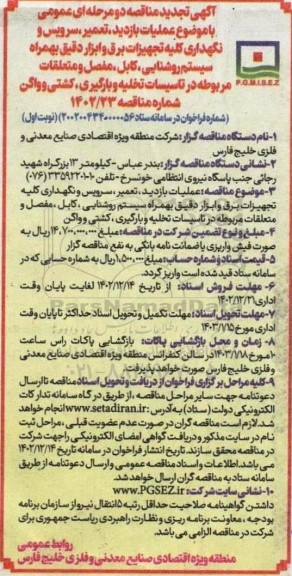 آگهی تجدید مناقصه دو مرحله ای عمومی
با موضوع عملیات بازدید، تعمیر، سرویس و
نگهداری کلیه تجهیزات برق و ابزار دقیق بهمراه
سیستم روشنایی، کابل، مفصل و متعلقات
مربوطه در تاسیسات تخلیه و بارگیری، کشتی و واگن
شماره مناقصه ۱۴۰۲/۲۳
P.G.M.I.S.E.Z
(شماره فراخوان در سامانه ستاد ۲۰۰۲۰۰۴۳۴۰۰۰۰۰۵۶) (نوبت اول)
۱-نام دستگاه مناقصه گزار: شرکت منطقه ویژه اقتصادی صنایع معدنی و
فلزی خلیج فارس
۲-نشانی دستگاه مناقصه گزار: بندرعباس - کیلومتر ۱۳ بزرگراه شهید
رجائی جنب پاسگاه نیروی انتظامی خونسرخ - تلفن ۱۰-۳۳۵۹۲۲۰۱ (۰۷۶)
۳-موضوع مناقصه: عملیات بازدید، تعمیر، سرویس و نگهداری کلیه
تجهیزات برق و ابزار دقیق بهمراه سیستم روشنایی، کابل، مفصل و
متعلقات مربوطه در تاسیسات تخلیه و بارگیری، کشتی و واگن
۴-مبلغ و نوع تضمین شرکت در مناقصه: مبلغ ۱۴,۷۰۰,۰۰۰,۰۰۰ ریال به
صورت فیش واریزی یا ضمانت نامه بانکی به نفع مناقصه گزار
۵-قیمت اسناد و شماره حساب: مبلغ ۱,۵۰۰,۰۰۰ ریال به شماره حسابی که در
سامانه ستاد قید شده است واریز گردد.
۶- مهلت فروش اسناد: از تاریخ ۱۴۰۲/۱۲/۱۴ لغایت پایان وقت
اداری ۱۴۰۲/۱۲/۲۱
۷-مهلت تحویل اسناد: مهلت تکمیل و تحویل اسناد حداکثر تا پایان وقت
اداری مورخ ۱۴۰۳/۱/۱۵
۸- زمان و محل بازگشایی پاکات: بازگشایی پاکات راس ساعت
۱۰ مورخ ۱۴۰۳/۱/۱۸ در سالن کنفرانس منطقه ویژه اقتصادی صنایع معدنی
و فلزی خلیج فارس صورت خواهد پذیرفت.
۹-کلیه مراحل برگزاری فراخوان از دریافت و تحویل اسناد مناقصه تا ارسال
دعوتنامه جهت سایر مراحل مناقصه، از طریق درگاه سامانه تدارکات
الکترونیکی دولت (ستاد) به آدرس: www.setadiran.ir انجام خواهد
شد. لازم است مناقصه گران در صورت عدم عضویت قبلی، مراحل ثبت
نام در سایت مذکور و دریافت گواهی امضای الکترونیکی را جهت شرکت
در مناقصه محقق سازند. تاریخ انتشار فراخوان در سامانه تاریخ ۱۴۰۲/۱۲/۱۴
می باشد. اطلاعات و اسناد مناقصه عمومی و ارسال دعوتنامه از طریق
سامانه ستاد به مناقصه گران ارسال خواهد شد.
۱۰-نشانی سایت شرکت: www.PGSEZ.ir
داشتن گواهینامه صلاحیت حداقل رتبه ۵ انتقال نیرو از سازمان برنامه
بودجه، معاونت برنامه ریزی و نظارت راهبردی ریاست جمهوری برای
شرکت در مناقصه الزامی می باشد.
روابط عمومی
منطقه ویژه اقتصادی صنایع معدنی و فلزی خلیج فارس